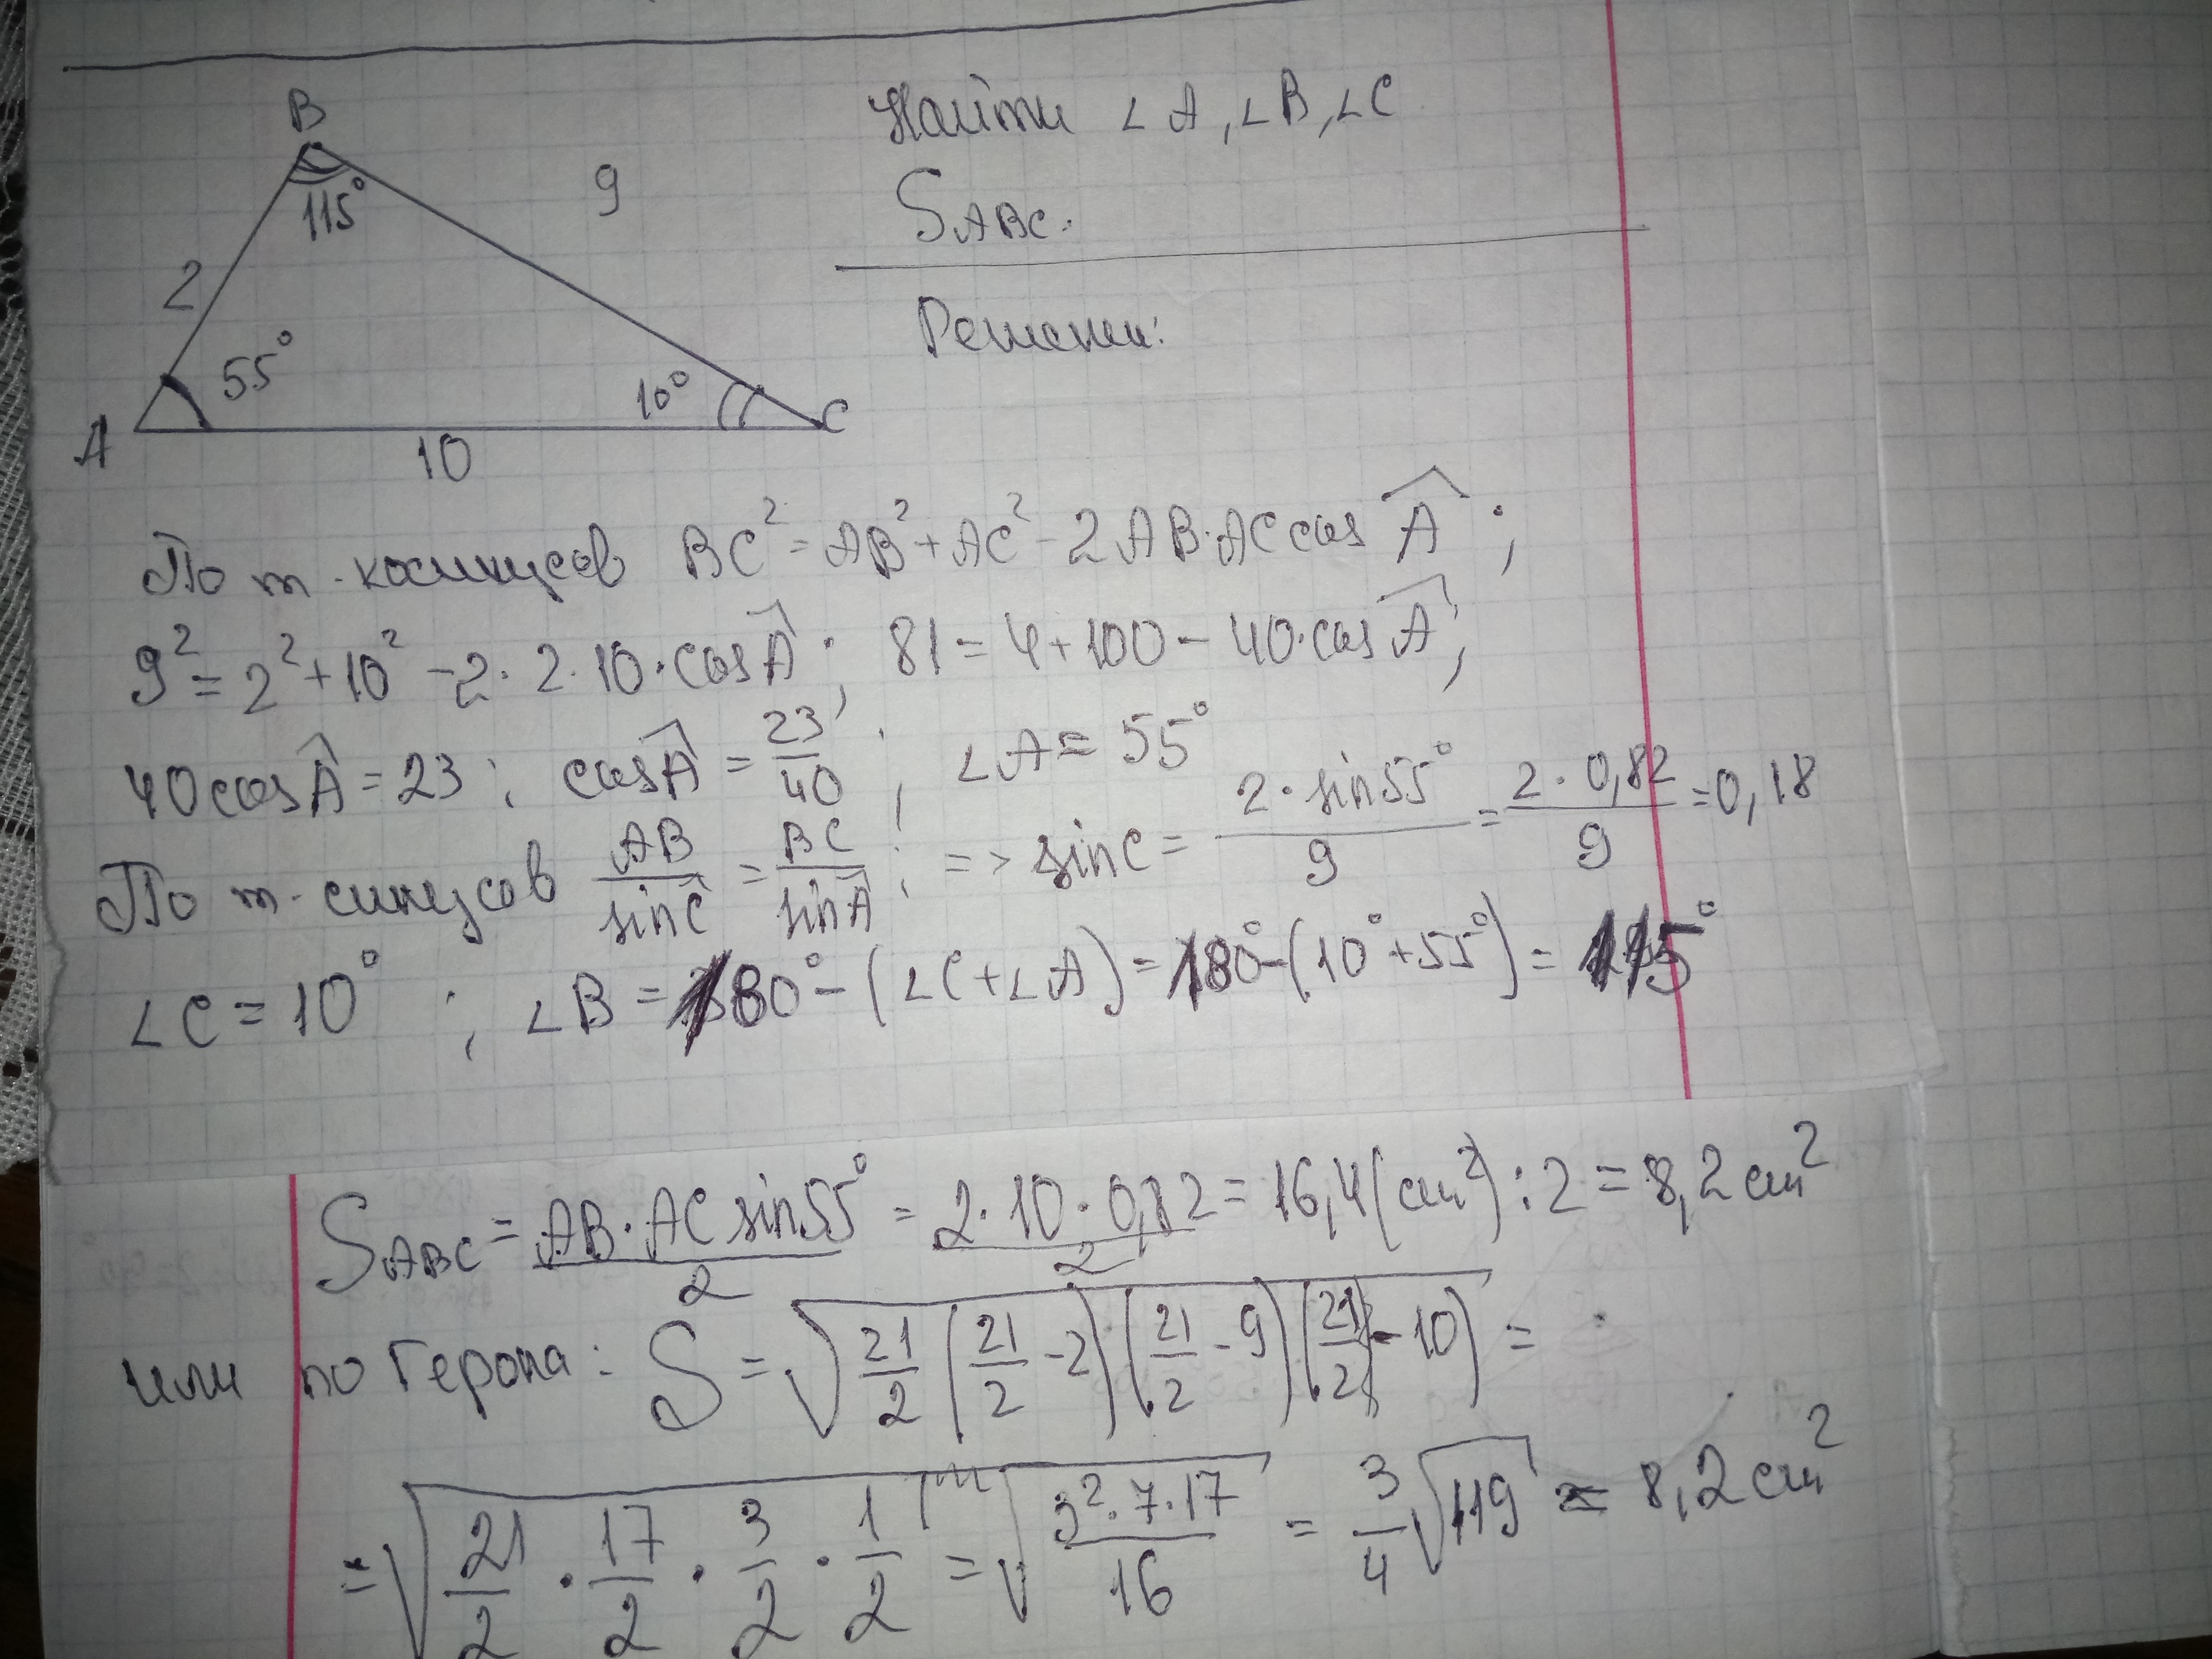 B
9
115°
2
55°
10°
A
C
10
Найти ∠A, ∠B, ∠C
S_ABC.
Решение:
По т. косинусов BC² = AB² + AC² - 2AB·AC cos Â;
9² = 2² + 10² - 2·2·10·cos Â; 81 = 4 + 100 - 40·cos Â;
40 cos Â = 23; cos Â = 23/40; ∠A = 55°
По т. синусов AB/sin Ĉ = BC/sin Â; => sin C = 2·sin55°/9 = 2·0,82/9 = 0,18
∠C = 10°; ∠B = 180° - (∠C + ∠A) = 180° - (10° + 55°) = 115°
S_ABC = AB·AC sin55°/2 = 2·10·0,82/2 = 16,4 (см²) : 2 = 8,2 см²
или по Герона: S = √(21/2 (21/2 - 2)(21/2 - 9)(21/2 - 10)) =
= √(21/2 · 17/2 · 3/2 · 1/2) = √(3²·7·17/16) = 3/4 √119 ≈ 8,2 см²